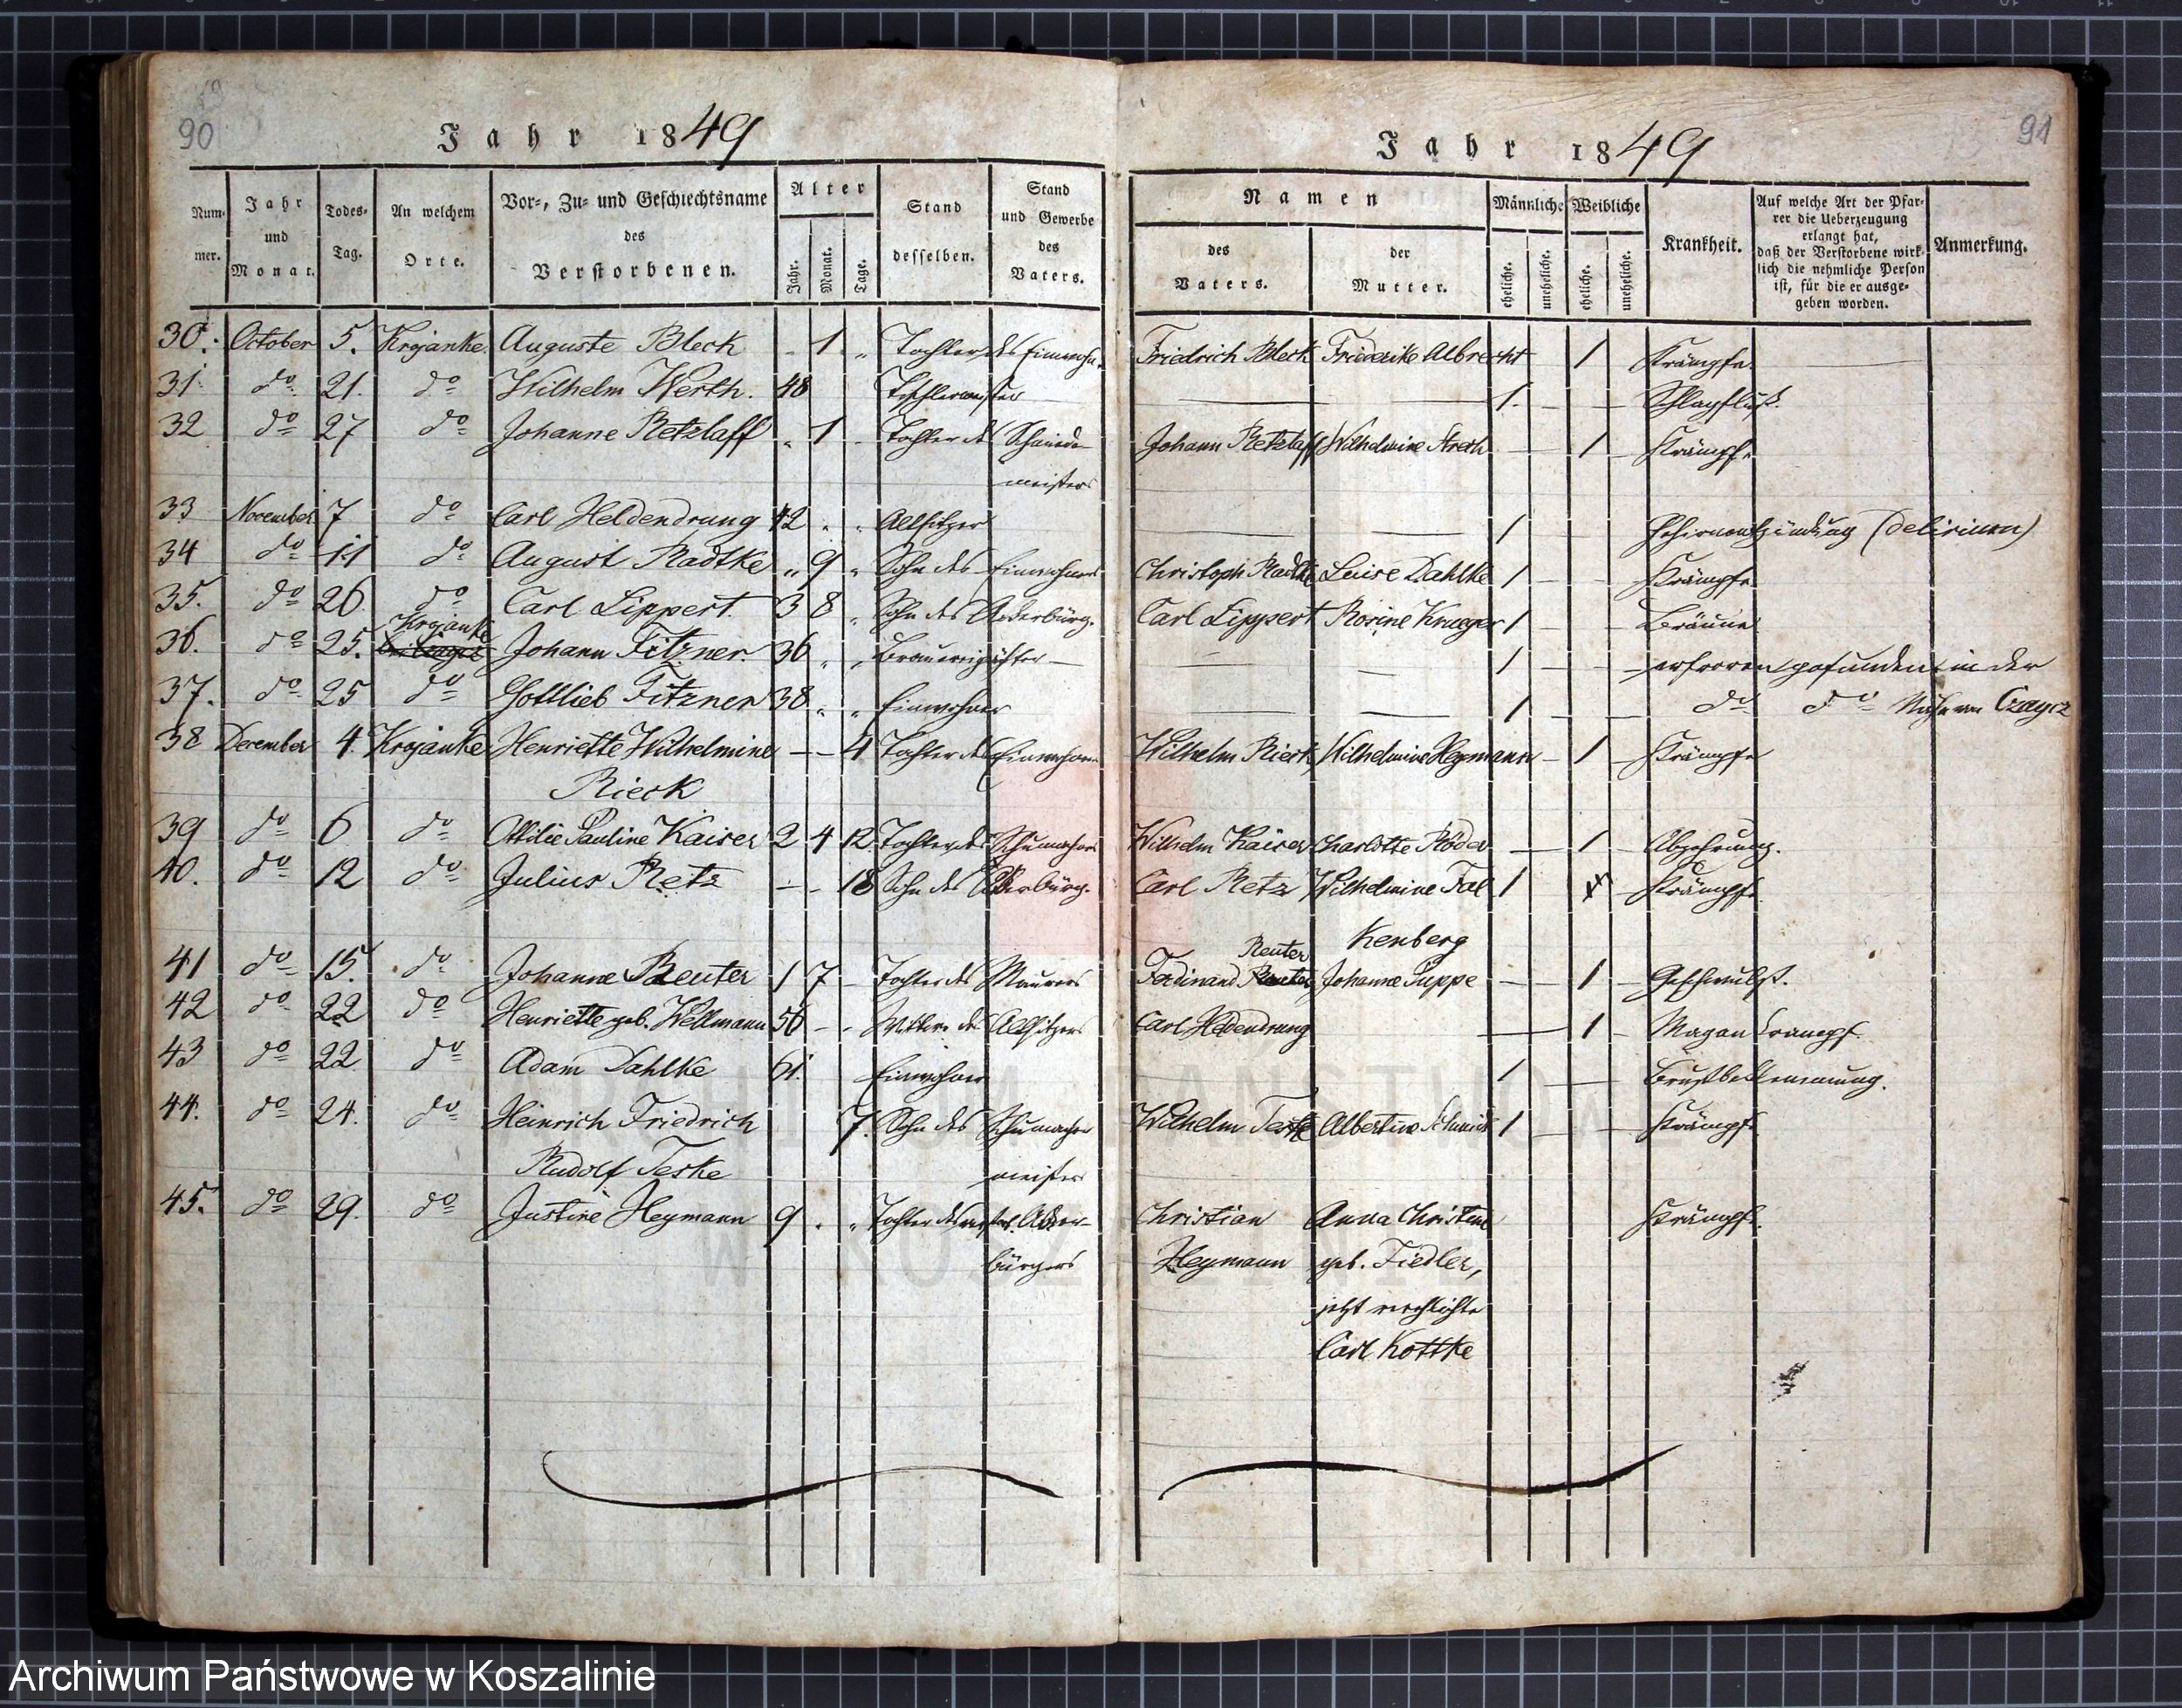 90
Jahr 1849
Num-
mer.
Jahr
und
Monat.
Todes-
Tag.
An welchem
Orte.
Vor-, Zu- und Geschlechtsname
des
Verstorbenen.
Alter
Jahr.
Monat.
Tage.
Stand
desselben.
Stand
und Gewerbe
des
Vaters.
30. October 5. Krojanke Auguste Bleck „ 1 „ Tochter des Einwohn.
31. do 21. do Wilhelm Werth. 48 Tischlermeister
32 do 27 do Johanne Retzlaff „ 1 - Tochter des Schmiede-
meisters
33 November 7 do Carl Heldendrung 42 „ „ Altsitzer
34 do 11 do August Radtke „ 9 „ Sohn des Einwohners
35. do 26. do Carl Lippert 3 8 „ Sohn des Ackerbürg.
Krojanke
36. do 25. Johann Fitzner. 36 „ „
37. do 25 do Gottlieb Fitzner 38 „ „ Einwohner
38 December 4. Krojanke Henriette Wilhelmine — — 4 Tochter des Einwohn.
Rieck
39 do 6 do Ottilie Pauline Kaiser 2 4 12 Tochter des Schumachers
40. do 12 do Julius Retz — - 18 Sohn des Ackerbürg.
41 do 15. do Johanna Reuter 1 7 - Tochter des Maurers
42 do 22 do Henriette geb. Wellmann 56 - - Wittwe des Altsitzers
43 do 22 do Adam Dahlke 61. Einwohner
44. do 24. do Heinrich Friedrich 7. Sohn des Schumacher
Rudolf Teske meisters
45. do 29. do Justine Heymann 9 „ „ Tochter des verstorb. Acker-
bürgers
91
Jahr 1849
Namen
des
Vaters.
der
Mutter.
Männliche
eheliche.
uneheliche.
Weibliche
eheliche.
uneheliche.
Krankheit.
Auf welche Art der Pfar-
rer die Ueberzeugung
erlangt hat,
daß der Verstorbene wirk-
lich die nehmliche Person
ist, für die er ausge-
geben worden.
Anmerkung.
Friedrich Bleck Friederike Albrecht 1 Krämpfe.
— — 1. — — Schlagfluß.
Johann Retzlaff Wilhelmine — 1 — Krämpfe
— — 1 — Gehirnentzündung (delirium)
Christoph Radtke Luise Dahlke 1 — — Krämpfe
Carl Lippert Rosine Krueger 1 — — Bräune
— — 1 — — — erfroren gefunden in der
— — 1 — — do do Nähe von Czaycz
Wilhelm Rieck Wilhelmine Heymann — 1 — Krämpfe
Wilhelm Kaiser Charlotte Röder — 1 — Abzehrung.
Carl Retz Wilhelmine Fal 1 — Krämpfe
kenberg
Reuter
Ferdinand Reuter Johanna Puppe — — 1 — Geschwulst.
Carl Heldendrung — 1 — Magenkrampf.
1 — Brustbeklemmung.
Wilhelm Teske Albertine Schmidt 1 — — Krämpfe
Christian Anna Christine Krämpfe.
Heymann geb. Fiedler,
jetzt verehlichte
Carl Kottke
Archiwum Państwowe w Koszalinie